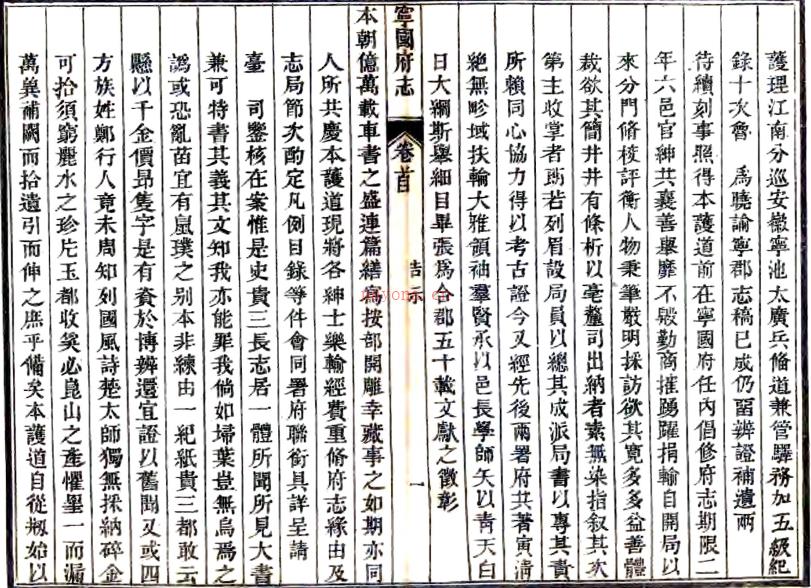 護理江南分巡安徽寧池太廣兵備道兼管驛務加五級紀
錄十次魯　為曉諭寧郡志稿已成仍留辨證補遺兩
待續刻事照得本護道前在寧國府任內倡修府志期限二
年六邑官紳共襄善舉靡不殷勤商搉踴躍捐輸自開局以
來分門脩校評衡人物秉筆嚴明採訪欲其寬多多益善體
裁欲其簡井井有條析以毫釐司出納者素無染指叙其次
第主收掌者既若列眉設局員以總其成派局書以專其責
所賴同心協力得以考古證今又經先後兩署府共著寅清
絕無畛域扶輪大雅領袖羣賢承以邑長學師矢以青天白
日大綱斯舉細目畢張為合郡五十載文獻之徵彰
寧國府志
卷首
告示
一
本朝億萬載車書之盛連篇繕寫按部開雕幸藏事之如期亦同
人所共慶本護道現將各紳士樂輸經費重脩府志緣由及
志局節次酌定凡例目錄等件會同署府聯銜具詳呈請
臺　司鑒核在案惟是史貴三長志居一體所聞所見大書
兼可特書其義其文知我亦能罪我倘如埽葉豈無烏焉之
譌或恐亂苗宜有鼠璞之别本非練由一紀紙貴三都敢云
懸以千金價昂隻字是有資於博辨還宜證以舊聞又或四
方族姓鄭行人竟未周知列國風詩楚太師獨無採納碎金
可拾須窮麗水之珍片玉都收奚必崑山之產懼星一而漏
萬冀補闕而拾遺引而伸之庶乎備矣本護道自從剏始以